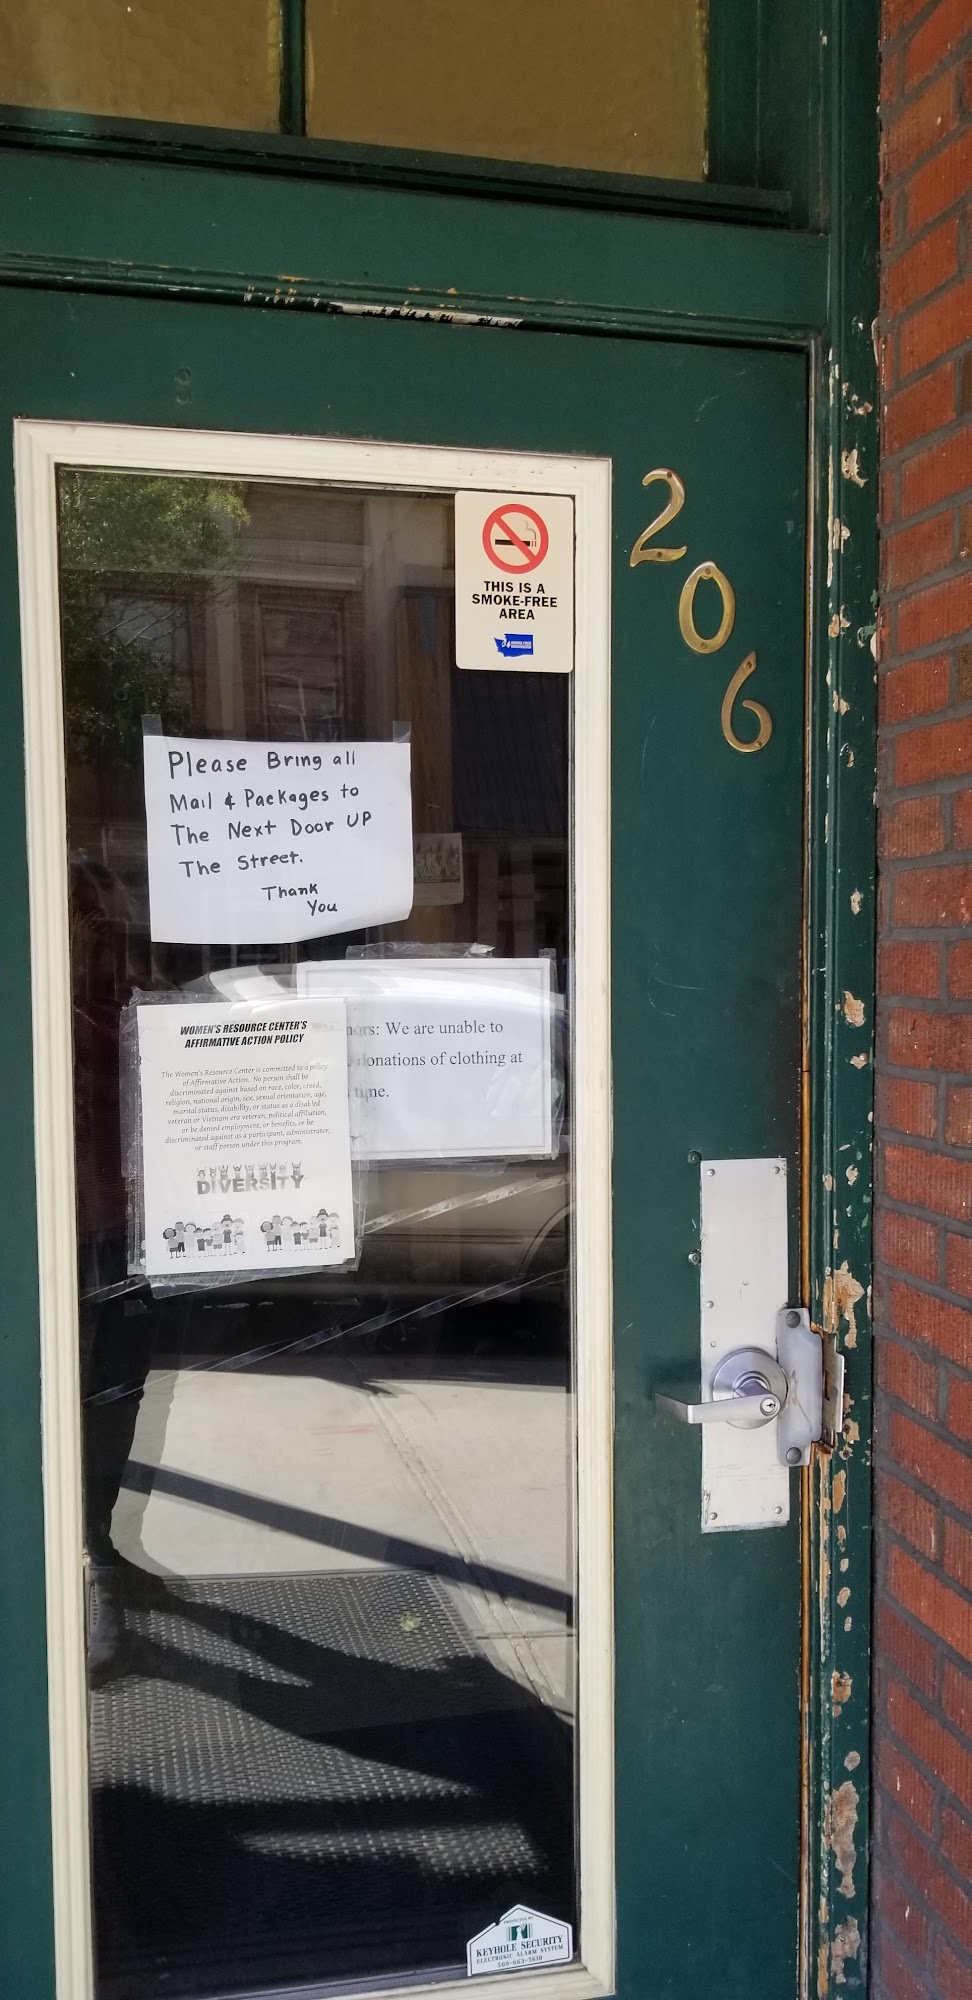 206
THIS IS A
SMOKE-FREE
AREA
Please Bring all
Mail & Packages to
The Next Door UP
The Street.
Thank
You
WOMEN'S RESOURCE CENTER'S
AFFIRMATIVE ACTION POLICY
The Women's Resource Center is committed to a policy
of Affirmative Action. No person shall be
discriminated against based on race, color, creed,
religion, national origin, sex, sexual orientation, age,
marital status, disability, or status as a disabled
veteran or Vietnam era veteran, political affiliation,
or be denied employment, or benefits, or be
discriminated against as a participant, administrator,
or staff person under this program.
DIVERSITY
We are unable to
donations of clothing at
time.
PROTECTED BY
KEYHOLE SECURITY
ELECTRONIC ALARM SYSTEM
509-663-5610